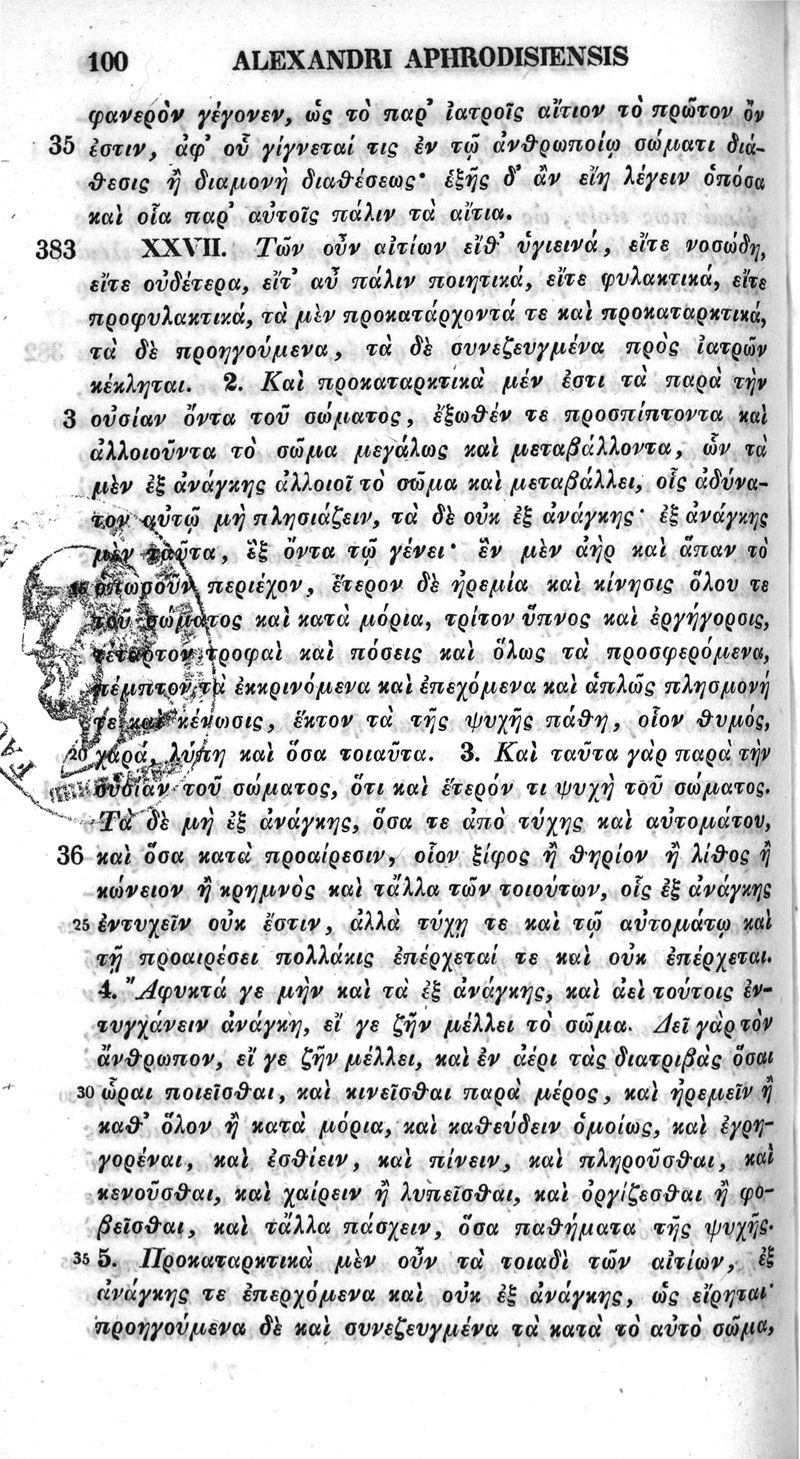 100 ALEXANDRI APHRODISIENSIS
φανερὸν γέγονεν, ὡς τὸ παρ’ ἰατροῖς αἴτιον τὸ πρῶτον ὄν
35 ἐστιν, ἀφ’ οὗ γίγνεταί τις ἐν τῷ ἀνθρωποίῳ σώματι διά-
θεσις ἢ διαμονὴ διαθέσεως· ἑξῆς δ’ ἂν εἴη λέγειν ὁπόσα
καὶ οἷα παρ’ αὐτοῖς πάλιν τὰ αἴτια.
383 XXVII. Τῶν οὖν αἰτίων εἴθ’ ὑγιεινά, εἴτε νοσώδη,
εἴτε οὐδέτερα, εἴτ’ αὖ πάλιν ποιητικά, εἴτε φυλακτικά, εἴτε
προφυλακτικά, τὰ μὲν προκατάρχοντά τε καὶ προκαταρκτικά,
τὰ δὲ προηγούμενα, τὰ δὲ συνεζευγμένα πρὸς ἰατρῶν
κέκληται. 2. Καὶ προκαταρκτικὰ μέν ἐστι τὰ παρὰ τὴν
3 οὐσίαν ὄντα τοῦ σώματος, ἔξωθέν τε προσπίπτοντα καὶ
ἀλλοιοῦντα τὸ σῶμα μεγάλως καὶ μεταβάλλοντα, ὧν τὰ
μὲν ἐξ ἀνάγκης ἀλλοιοῖ τὸ σῶμα καὶ μεταβάλλει, οἷς ἀδύνα-
τον αὐτῷ μὴ πλησιάζειν, τὰ δὲ οὐκ ἐξ ἀνάγκης· ἐξ ἀνάγκης
μὲν ταῦτα, ἓξ ὄντα τῷ γένει· ἓν μὲν ἀὴρ καὶ ἅπαν τὸ
περιέχον, ἕτερον δὲ ἠρεμία καὶ κίνησις ὅλου τε
τοῦ σώματος καὶ κατὰ μόρια, τρίτον ὕπνος καὶ ἐργήγορσις,
τέταρτον τροφαὶ καὶ πόσεις καὶ ὅλως τὰ προσφερόμενα,
πέμπτον τὰ ἐκκρινόμενα καὶ ἐπεχόμενα καὶ ἁπλῶς πλησμονή
τε καὶ κένωσις, ἕκτον τὰ τῆς ψυχῆς πάθη, οἷον θυμός,
20 χαρά, λύπη καὶ ὅσα τοιαῦτα. 3. Καὶ ταῦτα γὰρ παρὰ τὴν
οὐσίαν τοῦ σώματος, ὅτι καὶ ἕτερόν τι ψυχὴ τοῦ σώματος.
Τὰ δὲ μὴ ἐξ ἀνάγκης, ὅσα τε ἀπὸ τύχης καὶ αὐτομάτου,
36 καὶ ὅσα κατὰ προαίρεσιν, οἷον ξίφος ἢ θηρίον ἢ λίθος ἢ
κώνειον ἢ κρημνὸς καὶ τἄλλα τῶν τοιούτων, οἷς ἐξ ἀνάγκης
25 ἐντυχεῖν οὐκ ἔστιν, ἀλλὰ τύχῃ τε καὶ τῷ αὐτομάτῳ καὶ
τῇ προαιρέσει πολλάκις ἐπέρχεταί τε καὶ οὐκ ἐπέρχεται.
4. Ἄφυκτά γε μὴν καὶ τὰ ἐξ ἀνάγκης, καὶ ἀεὶ τούτοις ἐν-
τυγχάνειν ἀνάγκη, εἴ γε ζῆν μέλλει τὸ σῶμα. Δεῖ γὰρ τὸν
ἄνθρωπον, εἴ γε ζῆν μέλλει, καὶ ἐν ἀέρι τὰς διατριβὰς ὅσαι
30 ὧραι ποιεῖσθαι, καὶ κινεῖσθαι παρὰ μέρος, καὶ ἠρεμεῖν ἢ
καθ’ ὅλον ἢ κατὰ μόρια, καὶ καθεύδειν ὁμοίως, καὶ ἐγρη-
γορέναι, καὶ ἐσθίειν, καὶ πίνειν, καὶ πληροῦσθαι, καὶ
κενοῦσθαι, καὶ χαίρειν ἢ λυπεῖσθαι, καὶ ὀργίζεσθαι ἢ φο-
βεῖσθαι, καὶ τἄλλα πάσχειν, ὅσα παθήματα τῆς ψυχῆς.
35 5. Προκαταρκτικὰ μὲν οὖν τὰ τοιαδὶ τῶν αἰτίων, ἐξ
ἀνάγκης τε ἐπερχόμενα καὶ οὐκ ἐξ ἀνάγκης, ὡς εἴρηται·
προηγούμενα δὲ καὶ συνεζευγμένα τὰ κατὰ τὸ αὐτὸ σῶμα,